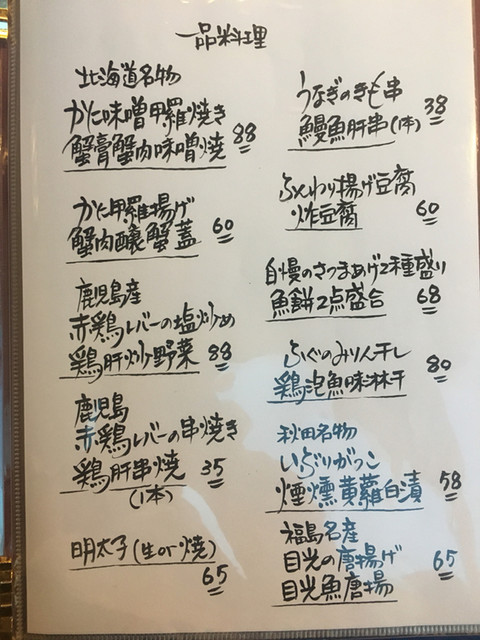 一品料理
北海道名物
かに味噌甲羅焼き
蟹膏蟹肉味噌焼 88
かに甲羅揚げ
蟹肉釀蟹蓋 60
鹿児島産
赤鶏レバーの塩炒め
鶏肝炒野菜 88
鹿児島
赤鶏レバーの串焼き
鶏肝串焼 35
(1本)
明太子(生or焼)
65
うなぎのきも串
鰻魚肝串(1本) 38
ふんわり揚げ豆腐
炸豆腐 60
自慢のさつまあげ2種盛り
魚餅2点盛合 68
ふぐのみりん干し
鶏泡魚味淋干 80
秋田名物
いぶりがっこ
煙燻黄蘿白漬 58
福島名産
目光の唐揚げ
目光魚唐揚 65